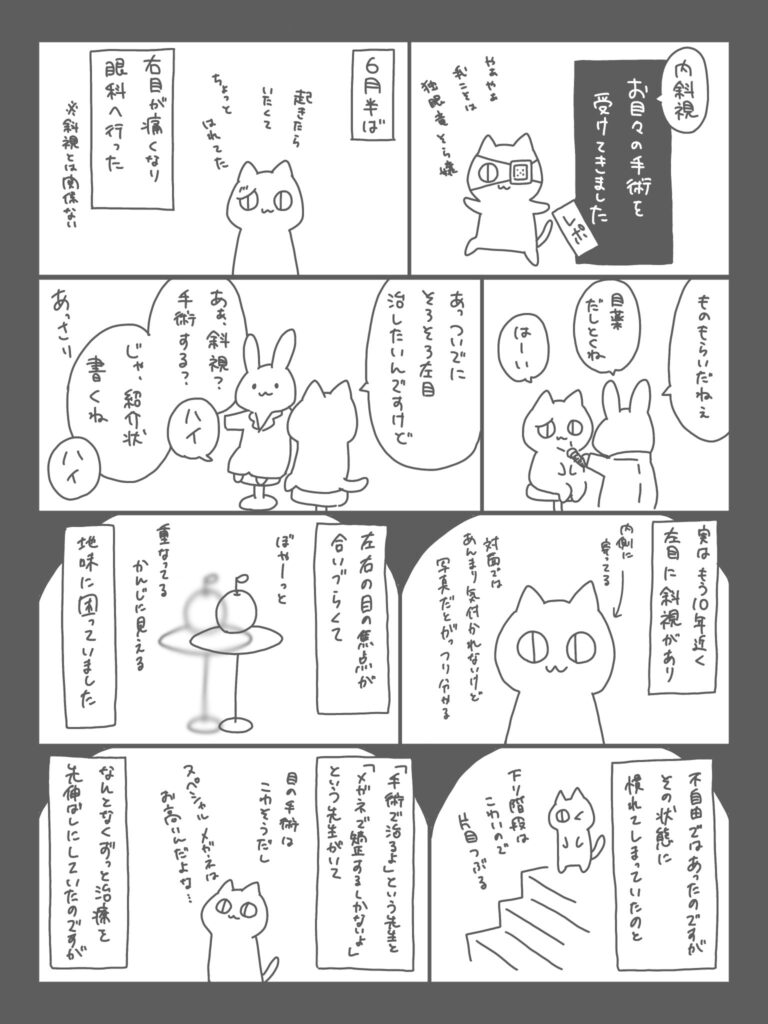 内斜視
お目々の手術を
受けてきました
レポ
やぁやぁ
我こそは
独眼竜そら様
6月半ば
起きたら
いたくて
ちょっと
はれてた
右目が痛くなり
眼科へ行った
※斜視とは関係ない
ものもらいだねぇ
目薬
だしとくね
はーい
あっついでに
そろそろ左目
治したいんですけど
あぁ、斜視?
手術する?
ハイ
じゃ、紹介状
書くね
ハイ
あっさり
実はもう10年近く
左目に斜視があり
内側に
寄ってる
対面では
あんまり気付かれないけど
写真だとがっつり分かる
左右の目の焦点が
合いづらくて
ぼやーっと
重なってる
かんじに見える
地味に困っていました
不自由ではあったのですが
その状態に
慣れてしまっていたのと
下り階段は
こわいので
片目つぶる
「手術で治るよ」という先生と
「メガネで矯正するしかないよ」
という先生がいて
目の手術は
こわそうだし
スペシャルメガネは
お高いんだよな…
なんとなくずっと治療を
先伸ばしにしていたのですが